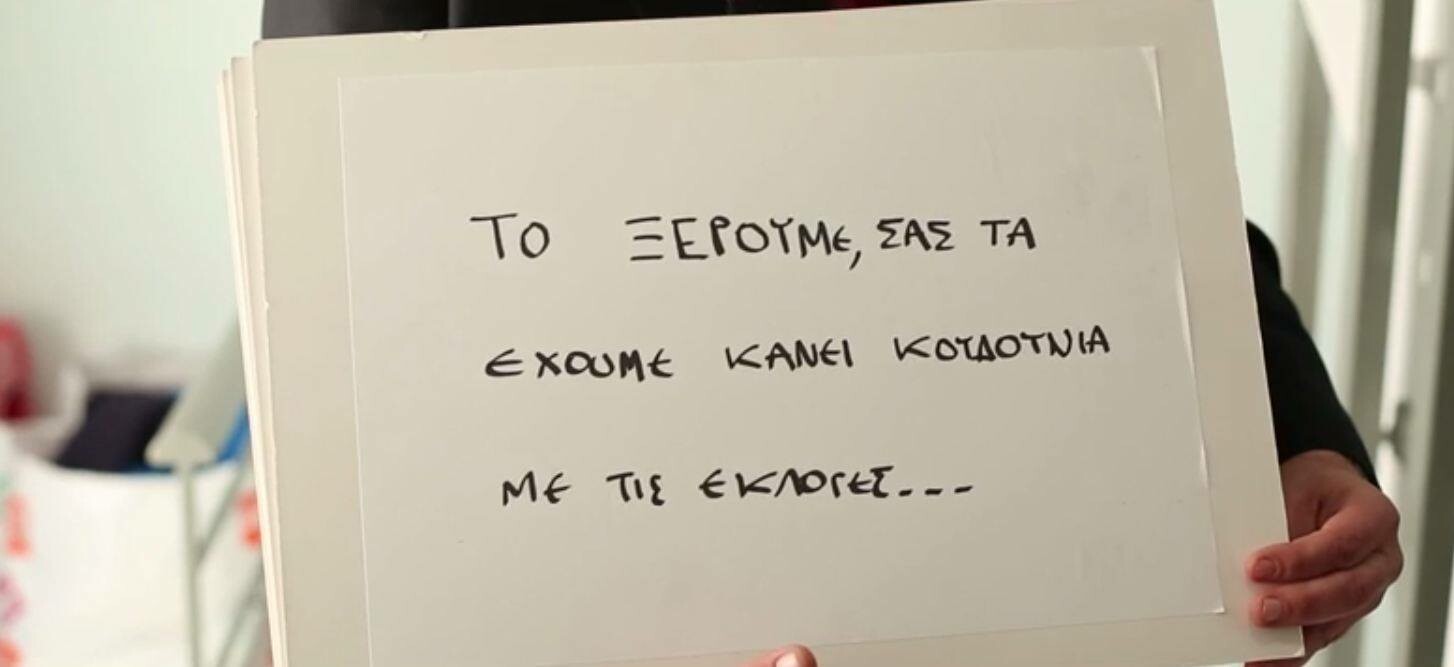 ΤΟ ΞΕΡΟΥΜΕ, ΣΑΣ ΤΑ
ΕΧΟΥΜΕ ΚΑΝΕΙ ΚΟΥΔΟΥΝΙΑ
ΜΕ ΤΙΣ ΕΚΛΟΓΕΣ...